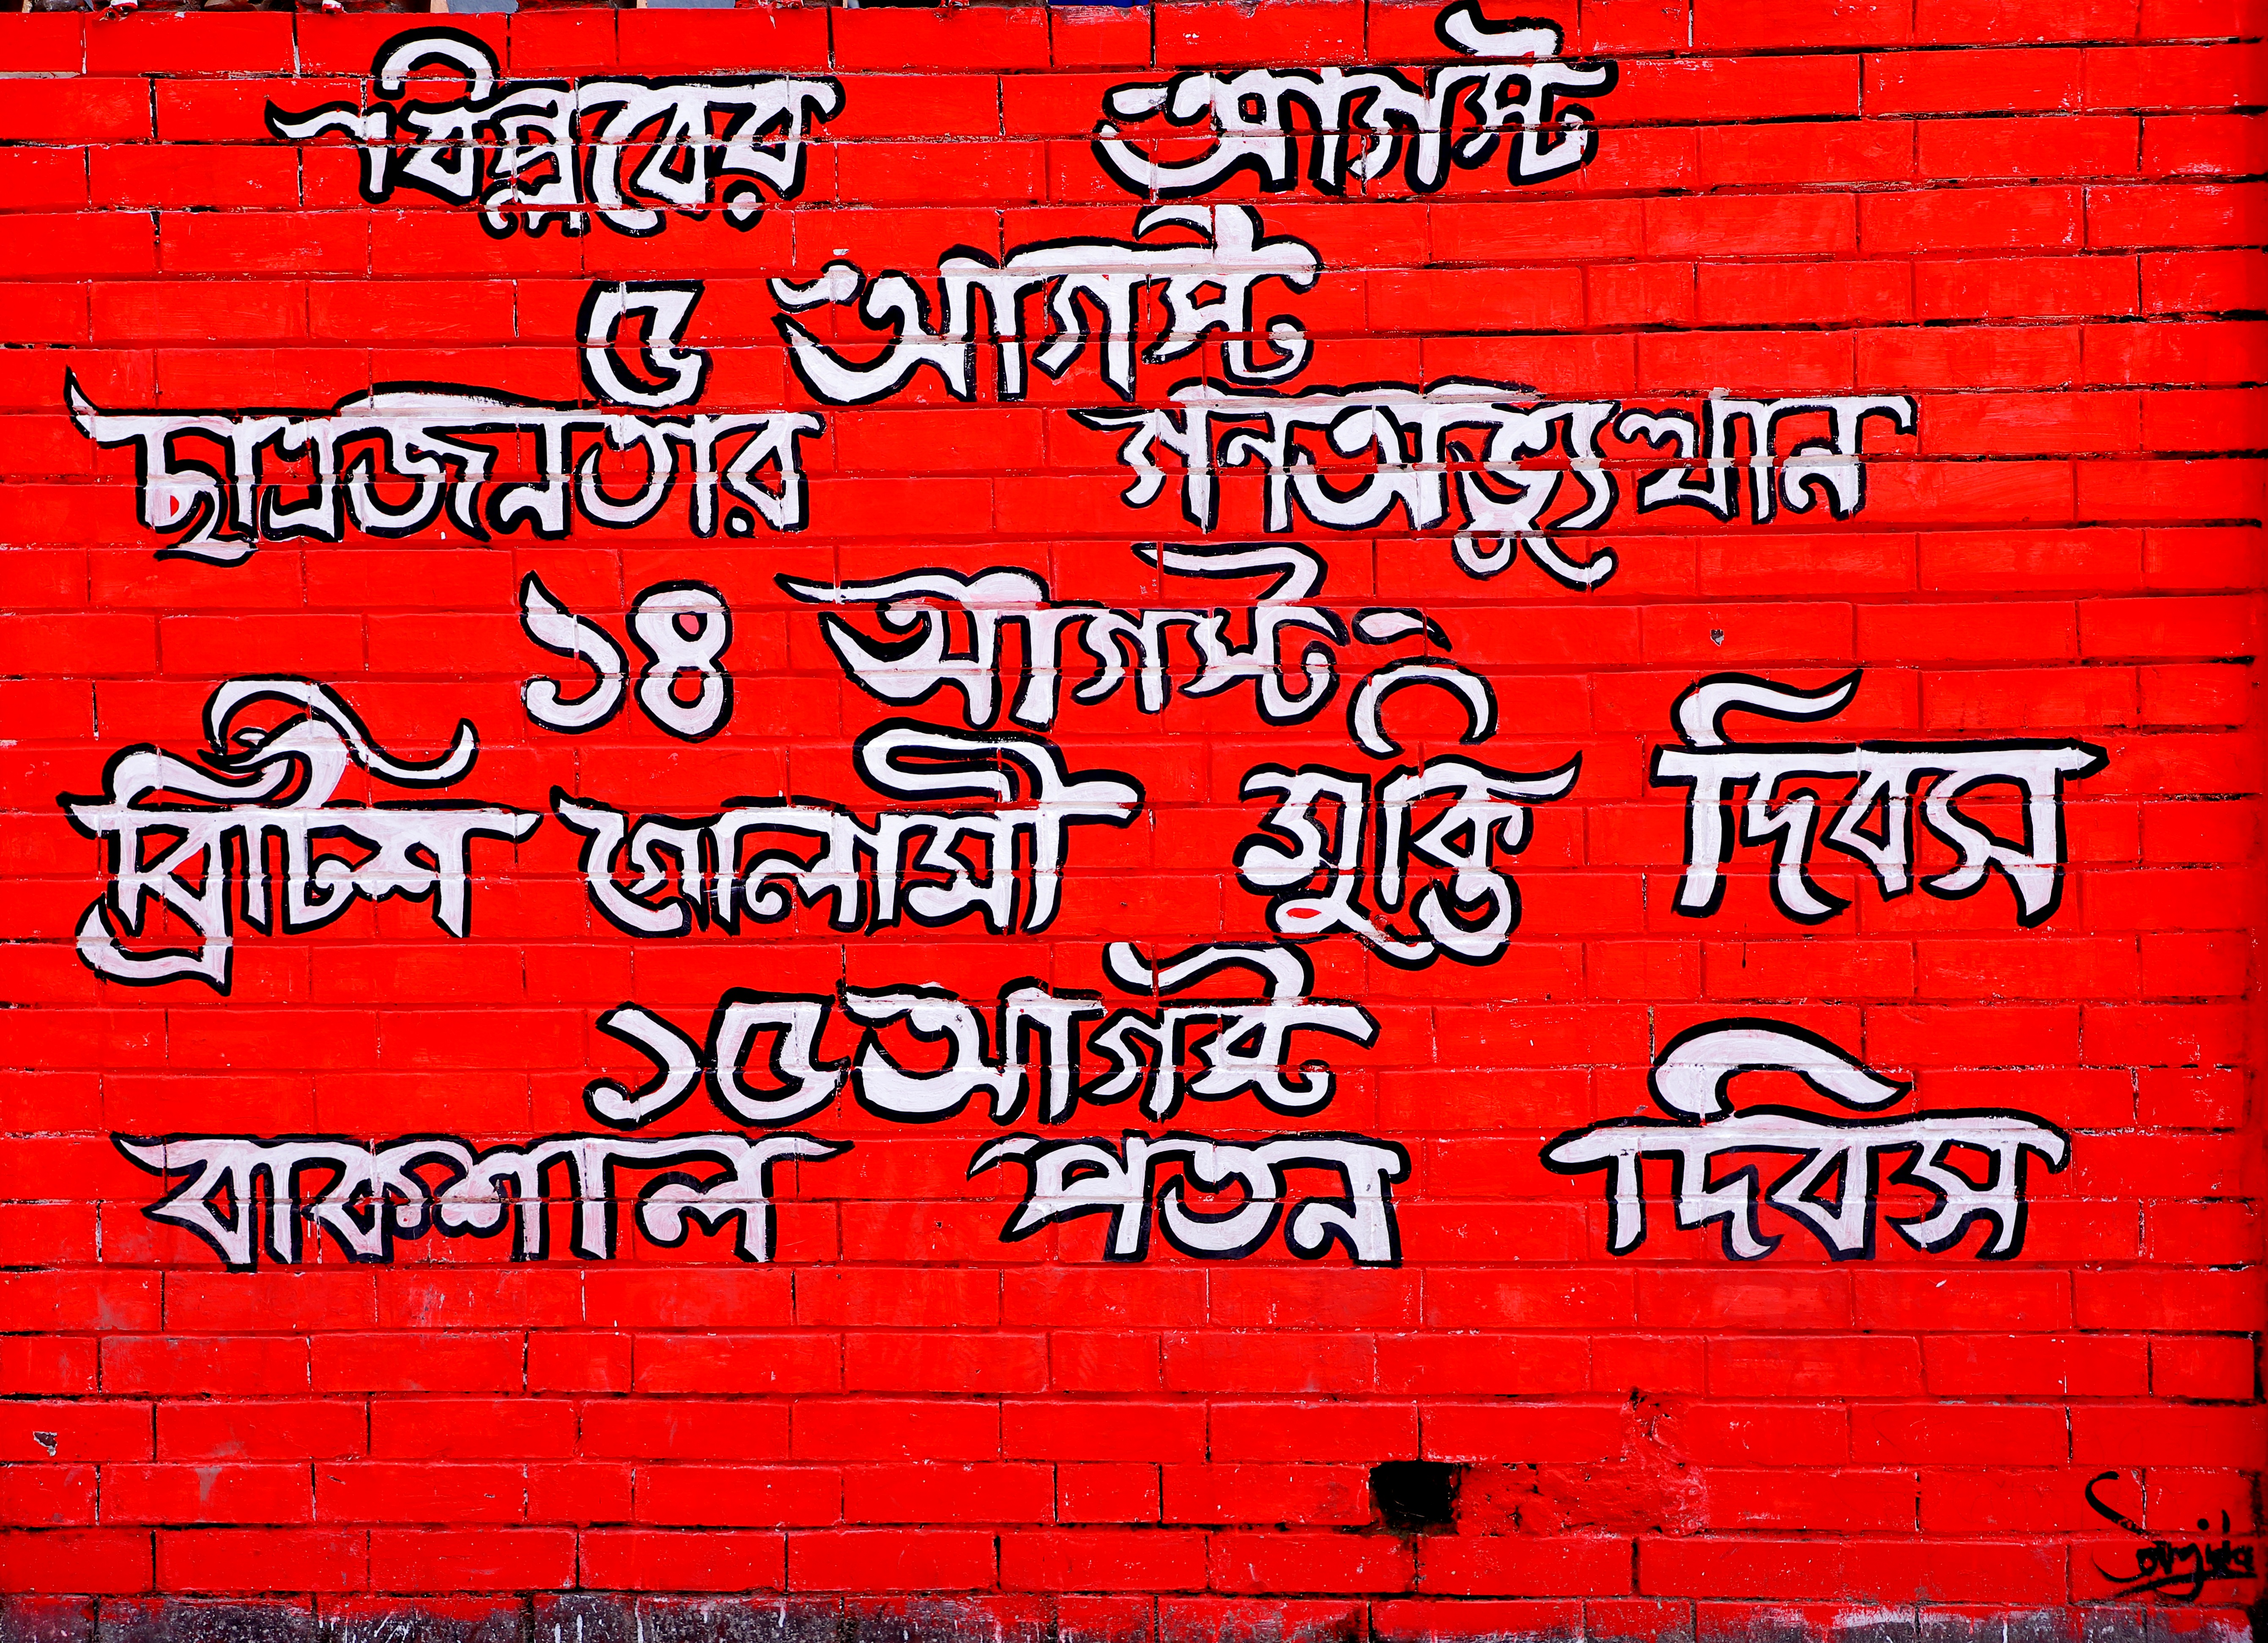 বিপ্লবের আগস্ট
৫ আগস্ট
ছাত্রজনতার গনঅভ্যুত্থান
১৪ আগস্ট
ব্রিটিশ গোলামী মুক্তি দিবস
১৫ আগস্ট
বাকশাল পতন দিবস
Sanjida